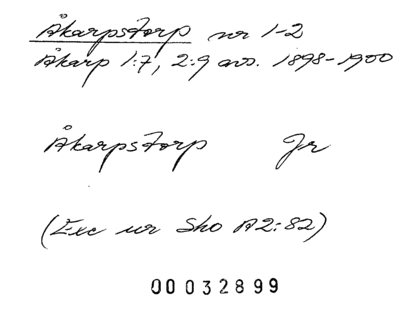 Åkarpstorp nr 1-2
Åkarp 1:7, 2:9 avs. 1898-1900
Åkarpstorp Jr
(Exc ur Sho A2:82)
00032899